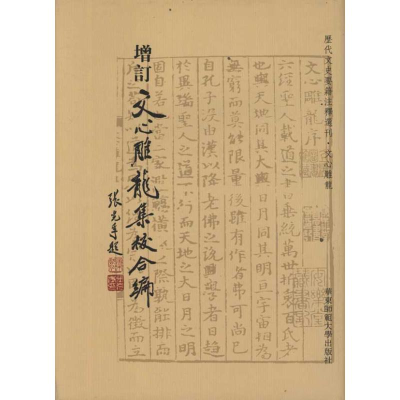 歷代文史要籍注釋選刊·文心雕龍
華東師範大學出版社
增訂文心雕龍集校合編
張光年題
文心雕龍序
六經聖人載道之書垂統萬世折衷百氏者
也與天地同其大日月同其明亘宇宙相為
無窮而莫能限量後雖有作者弗可尚已
自孔子沒由漢以降老佛之說興學者日趨
於異端聖人之道不行而天地之大日月之明